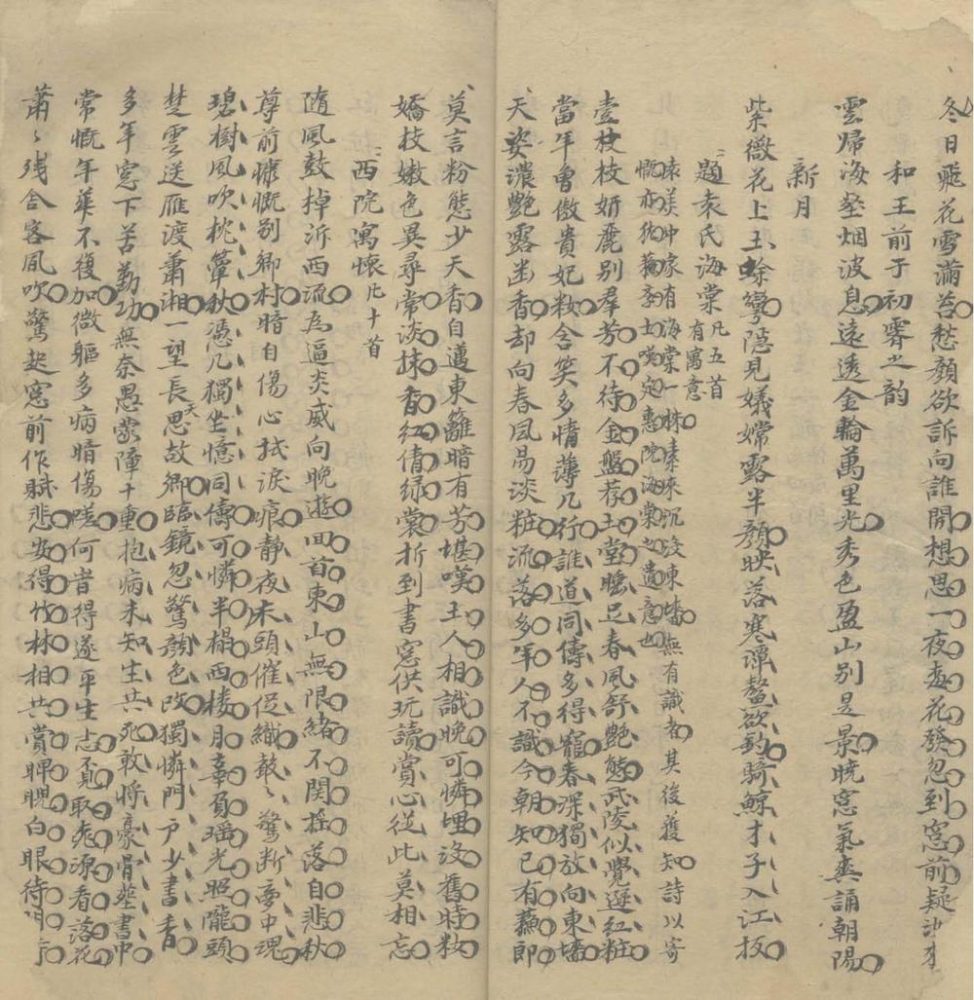 冬日飛花雪滿苔愁顏欲訴向誰開想思一夜委花發忽到窓前疑
和王前于初霽之韵
雲歸海壑烟波息遠透金輪萬里光秀色盈山別是景曉窓氣爽誦朝陽
新月
紫薇花上玉蜍彎隱見嫦露半顏映落寒潭鰲欲釣騎鯨才子入江扳
題袁氏海棠凡五首有寓意
袁美中家有海棠一株素來沉沒東墦無有識者其後獲知詩以寄
慨亦猶蘓學士嘆定惠院海棠之遺意也
壹枝枝妍麗別羣芳不待金盤荐玉堂睡足春風舒艷態武陵似覺遜紅粧
當年曾傲貴妃粧含笑多情薄几行誰道同儔多得寵春深獨放向東墦
天姿濃艷露幽香却向春風昜淡粧流落多年人不識今朝知已有蘓郎
莫言粉態少天香自遭東籬暗有芳堪嘆主人相識晚可憐埋沒舊時粧
嬌枝嫩色異尋常淡抹香紅倩緑裳折到書窓供玩讀賞心從此莫相忘
西院寓懷凡十首
隨風鼓掉泝西流為逼炎威向晚遊回首東山無限緒不関搖落自悲秋
尊前慷慨別鄉村暗自傷心拭淚痕静夜未頭催促織皷〻驚断夢中魂
碧樹風吹枕簟秋凴几獨坐憶同儔可憐半榻西楼月辜負瑶光照隴頭
楚雲送雁渡蕭湘一望長天思故鄉臨鏡忽驚顏色改獨憐門戶少書香
多年窓下苦勤功無奈愚蒙障十重抱病未知生共死敢將豪骨塟書中
常慨年華不復加微軀多病暗傷嗟何昔得遂平生志覔取桃源看落花
蕭〻殘舍客風吹驚起窓前作賦悲安得竹林相共賞睥睨白眼待